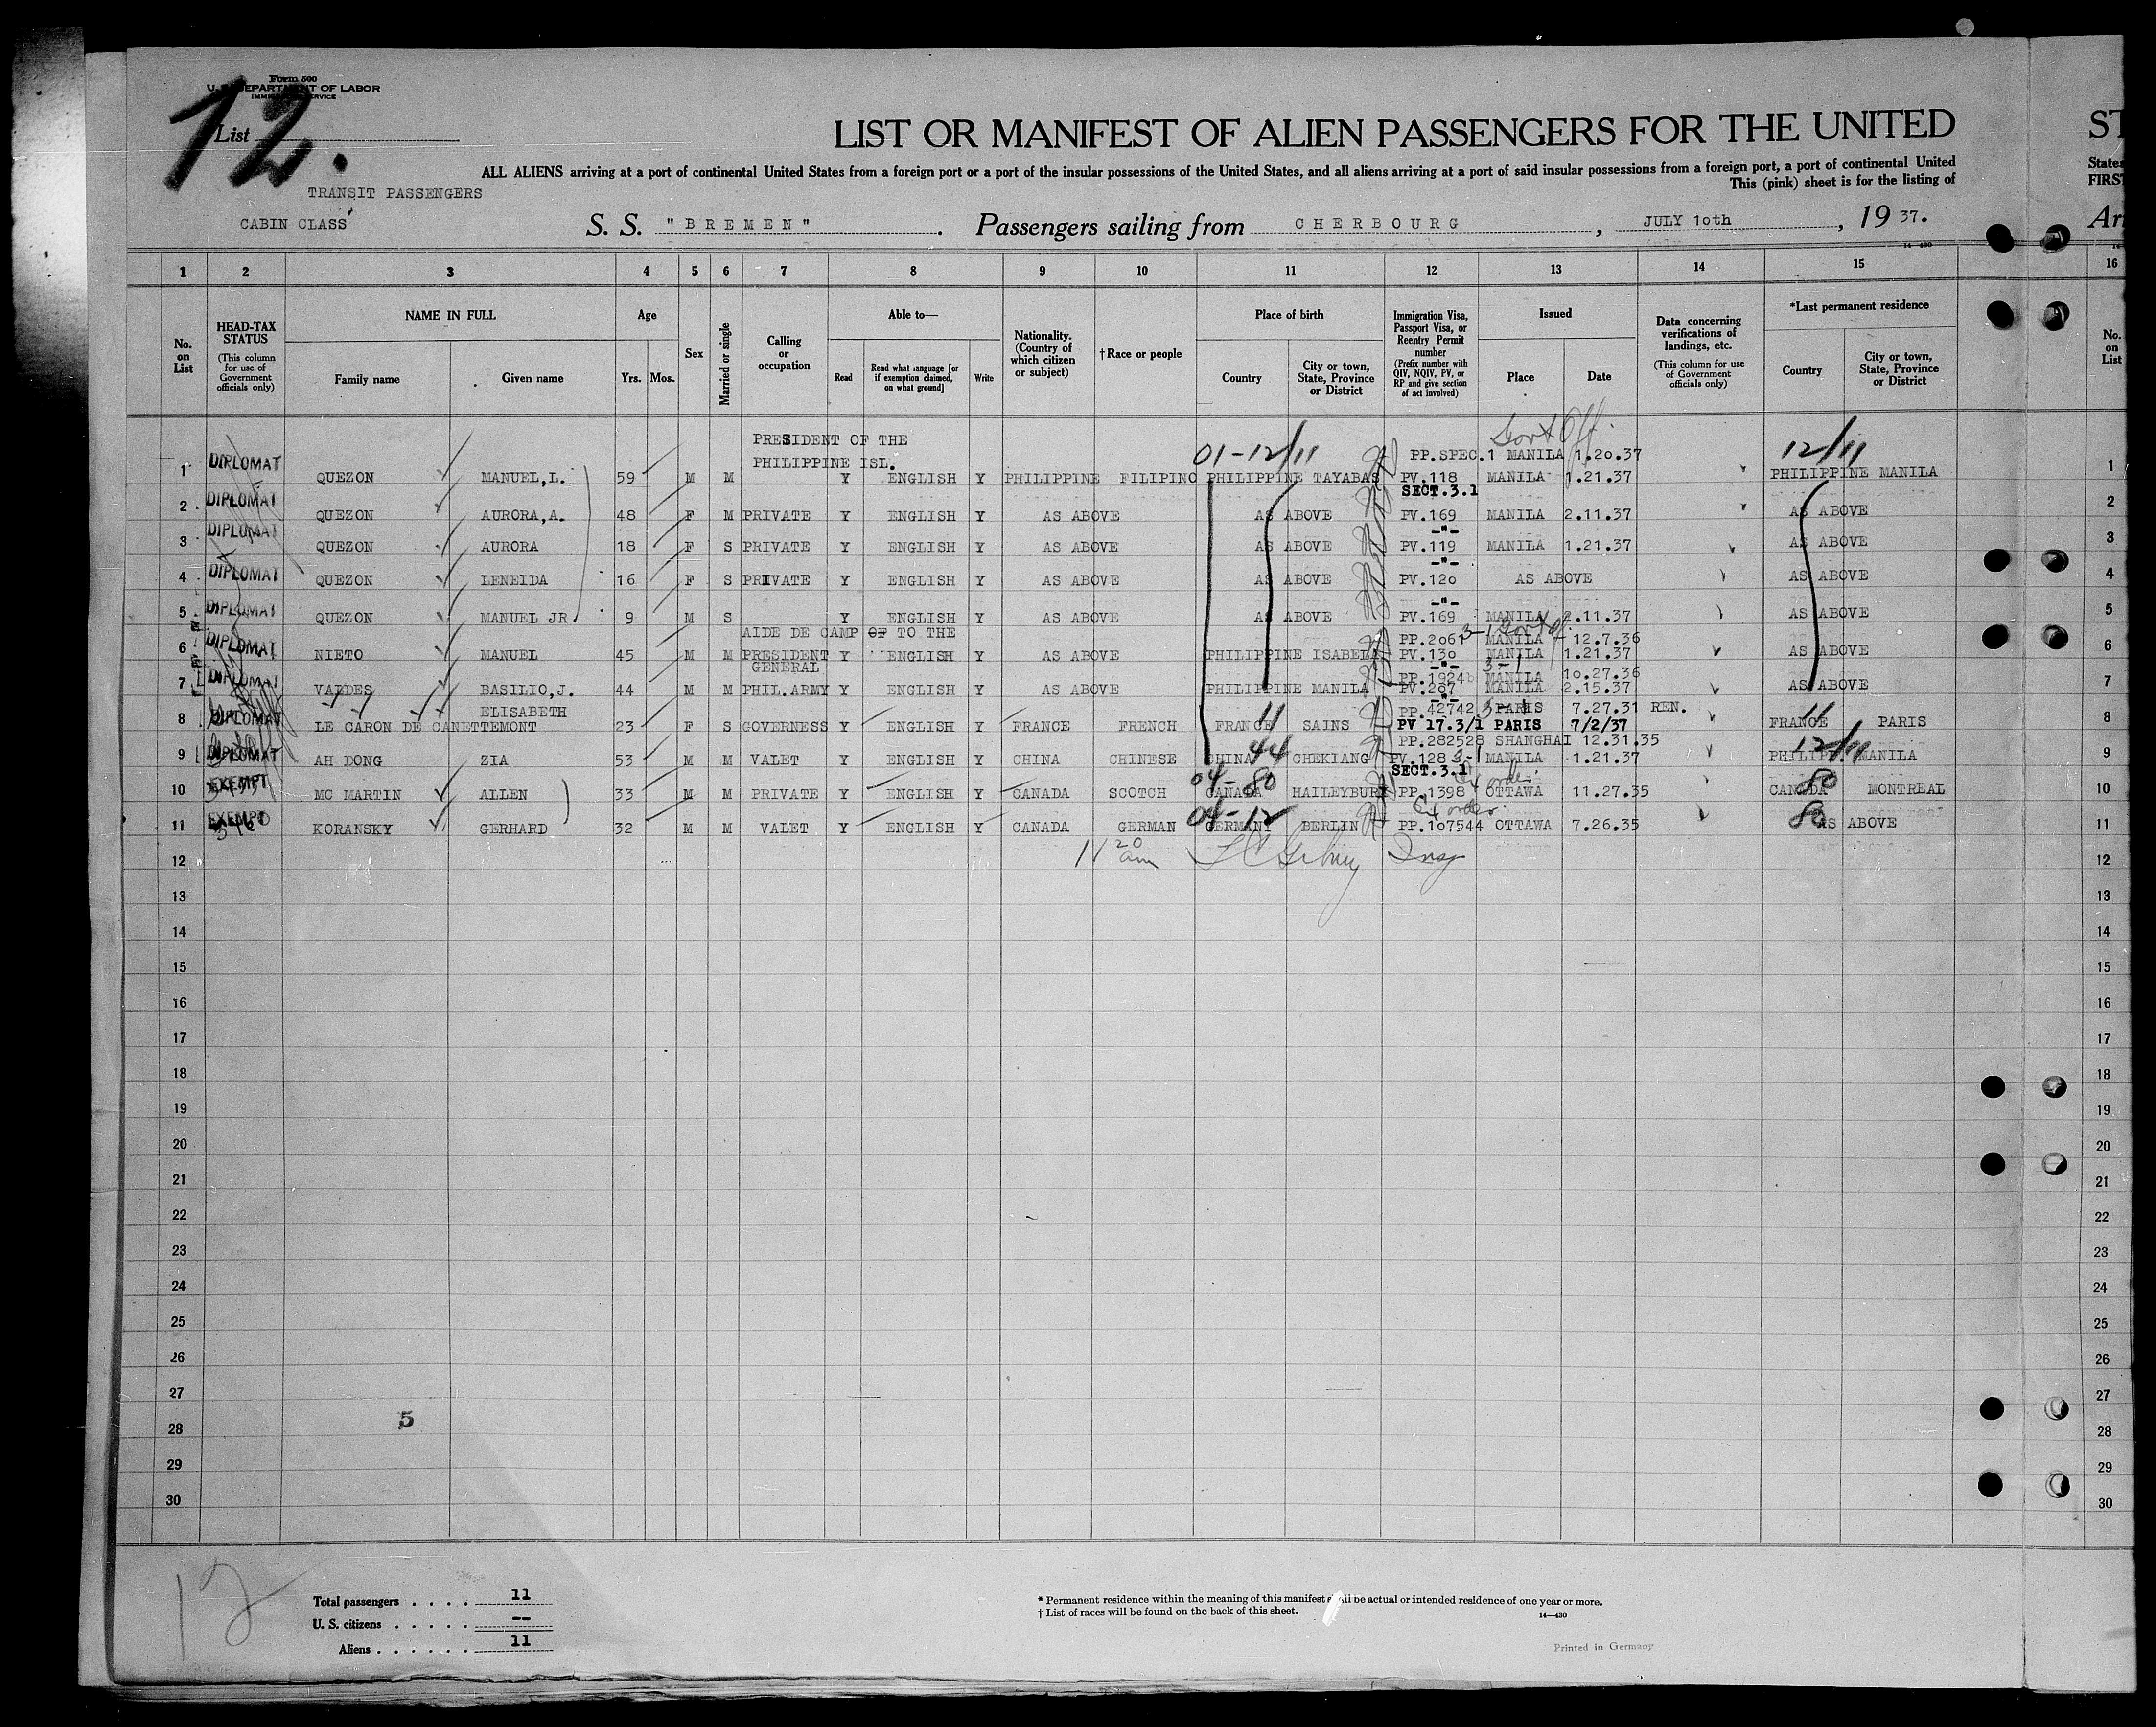 Form 500
U. S. DEPARTMENT OF LABOR
IMMIGRATION SERVICE
List 12.
LIST OR MANIFEST OF ALIEN PASSENGERS FOR THE UNITED ST
ALL ALIENS arriving at a port of continental United States from a foreign port or a port of the insular possessions of the United States, and all aliens arriving at a port of said insular possessions from a foreign port, a port of continental United States
This (pink) sheet is for the listing of FIRST
TRANSIT PASSENGERS
CABIN CLASS
S. S. "BREMEN". Passengers sailing from CHERBOURG, JULY 10th, 19 37. Arr
14—430
1 2 3 4 5 6 7 8 9 10 11 12 13 14 15 16
No. on List
HEAD-TAX STATUS (This column for use of Government officials only)
NAME IN FULL
Family name Given name
Age
Yrs. Mos.
Sex
Married or single
Calling or occupation
Able to—
Read Read what language [or if exemption claimed, on what ground] Write
Nationality. (Country of which citizen or subject)
†Race or people
Place of birth
Country City or town, State, Province or District
Immigration Visa, Passport Visa, or Reentry Permit number (Prefix number with QIV, NQIV, PV, or RP and give section of act involved)
Issued
Place Date
Data concerning verifications of landings, etc. (This column for use of Government officials only)
*Last permanent residence
Country City or town, State, Province or District
No. on List
Govt Off.
PRESIDENT OF THE 01-12/11 12/11
PHILIPPINE ISL. PP.SPEC.1 MANILA 1.20.37
1 DIPLOMAT QUEZON MANUEL,L. 59 M M Y ENGLISH Y PHILIPPINE FILIPINO PHILIPPINE TAYABAS PV.118 MANILA 1.21.37 PHILIPPINE MANILA 1
SECT.3.1
2 DIPLOMAT QUEZON AURORA,A. 48 F M PRIVATE Y ENGLISH Y AS ABOVE AS ABOVE PV.169 MANILA 2.11.37 AS ABOVE 2
-"-
3 DIPLOMAT QUEZON AURORA 18 F S PRIVATE Y ENGLISH Y AS ABOVE AS ABOVE PV.119 MANILA 1.21.37 AS ABOVE 3
-"-
4 DIPLOMAT QUEZON LENEIDA 16 F S PRIVATE Y ENGLISH Y AS ABOVE AS ABOVE PV.120 AS ABOVE AS ABOVE 4
-"-
5 DIPLOMAT QUEZON MANUEL JR. 9 M S Y ENGLISH Y AS ABOVE AS ABOVE PV.169 MANILA 2.11.37 AS ABOVE 5
AIDE DE CAMP OF TO THE PP.2061 3-1 MANILA 12.7.36
6 DIPLOMAT NIETO MANUEL 45 M M PRESIDENT Y ENGLISH Y AS ABOVE PHILIPPINE ISABELA PV.130 MANILA 1.21.37 AS ABOVE 6
GENERAL -"- 3-1
PP.1924 MANILA 10.27.36
7 DIPLOMAT VALDES BASILIO,J. 44 M M PHIL.ARMY Y ENGLISH Y AS ABOVE PHILIPPINE MANILA PV.207 MANILA 2.15.37 AS ABOVE 7
-"-
ELISABETH PP.42742 3-1 PARIS 7.27.31 REN.
8 DIPLOMAT LE CARON DE CANETTEMONT 23 F S GOVERNESS Y ENGLISH Y FRANCE FRENCH FRANCE 11 SAINS PV 17.3/1 PARIS 7/2/37 FRANCE 11 PARIS 8
PP.282528 SHANGHAI 12.31.35
9 DIPLOMAT AH DONG ZIA 53 M M VALET Y ENGLISH Y CHINA CHINESE CHINA 44 CHEKIANG PV.128 3-1 MANILA 1.21.37 PHILIPP. 12/11 MANILA 9
SECT.3.1 Ex order
10 EXEMPT MC MARTIN ALLEN 33 M M PRIVATE Y ENGLISH Y CANADA SCOTCH 04-80 CANADA HAILEYBURY PP.1398 OTTAWA 11.27.35 CANADA 80 MONTREAL 10
Ex order
11 EXEMPT KORANSKY GERHARD 32 M M VALET Y ENGLISH Y CANADA GERMAN 04-12 GERMANY BERLIN PP.107544 OTTAWA 7.26.35 80 AS ABOVE 11
12 11 20 am Insp 12
13 13
14 14
15 15
16 16
17 17
18 18
19 19
20 20
21 21
22 22
23 23
24 24
25 25
26 26
27 27
5
28 28
29 29
30 30
12
Total passengers . . . . 11
U. S. citizens . . . . . --
Aliens . . . . . . 11
* Permanent residence within the meaning of this manifest shall be actual or intended residence of one year or more.
† List of races will be found on the back of this sheet.
14—430
Printed in Germany